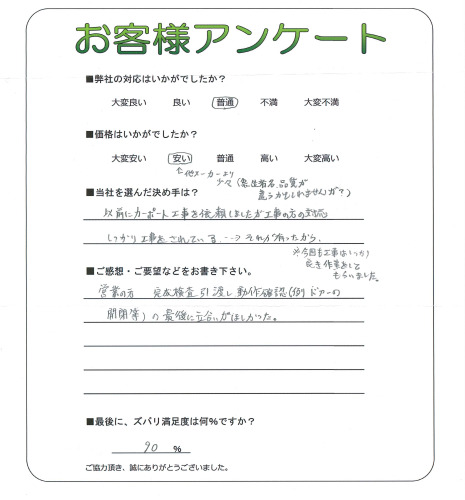 お客様アンケート
■弊社の対応はいかがでしたか？
大変良い 良い 普通 不満 大変不満
■価格はいかがでしたか？
大変安い 安い 普通 高い 大変高い
他メーカーより
少々(発生者名、品質が
違うかもしれませんが？)
■当社を選んだ決め手は？
以前にカーポート工事を依頼しましたが工事の方の対応
しっかり工事をされている、--->それが有ったから、
※今回も工事はしっかり
良き作業をして
もらいました。
■ご感想・ご要望などをお書き下さい。
営業の方 完成検査引渡し動作確認(例ドアーの
開閉等)の最後に立合いがほしかった。
■最後に、ズバリ満足度は何％ですか？
90 ％
ご協力頂き、誠にありがとうございました。